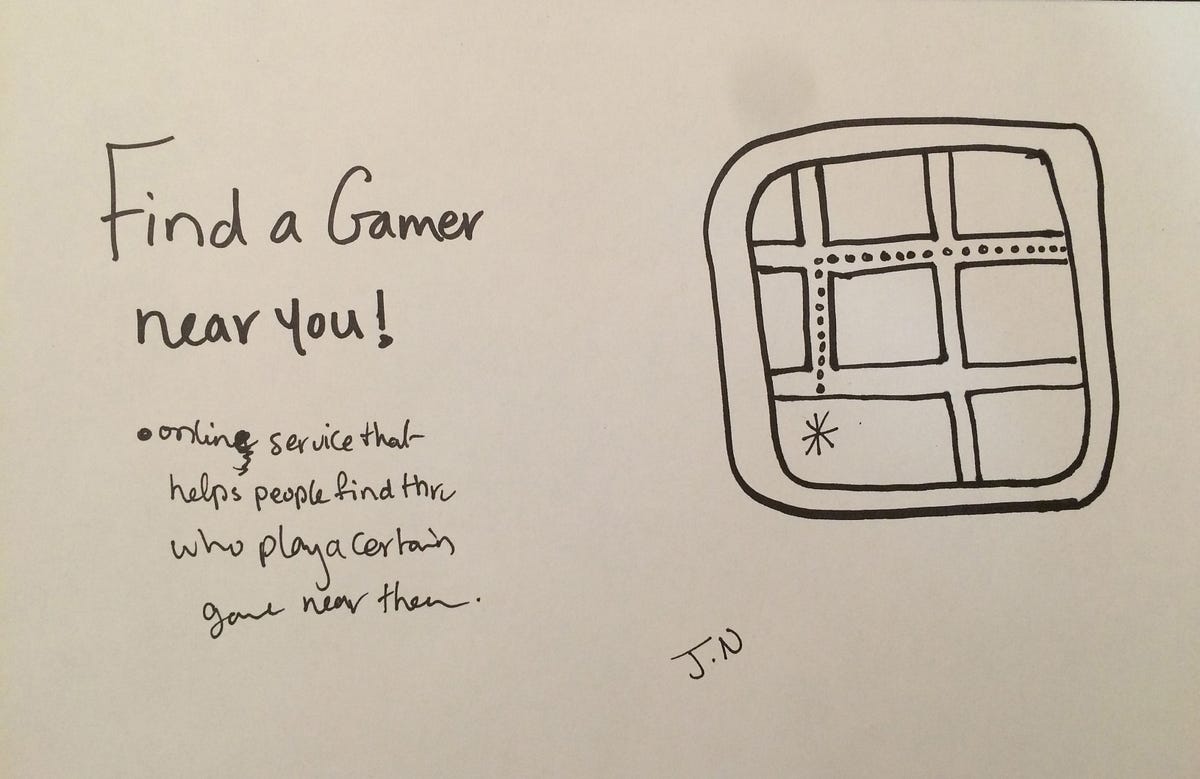 Find a Gamer
near you!
• online service that
helps people find thru
who play a certain
game near them.
J.N